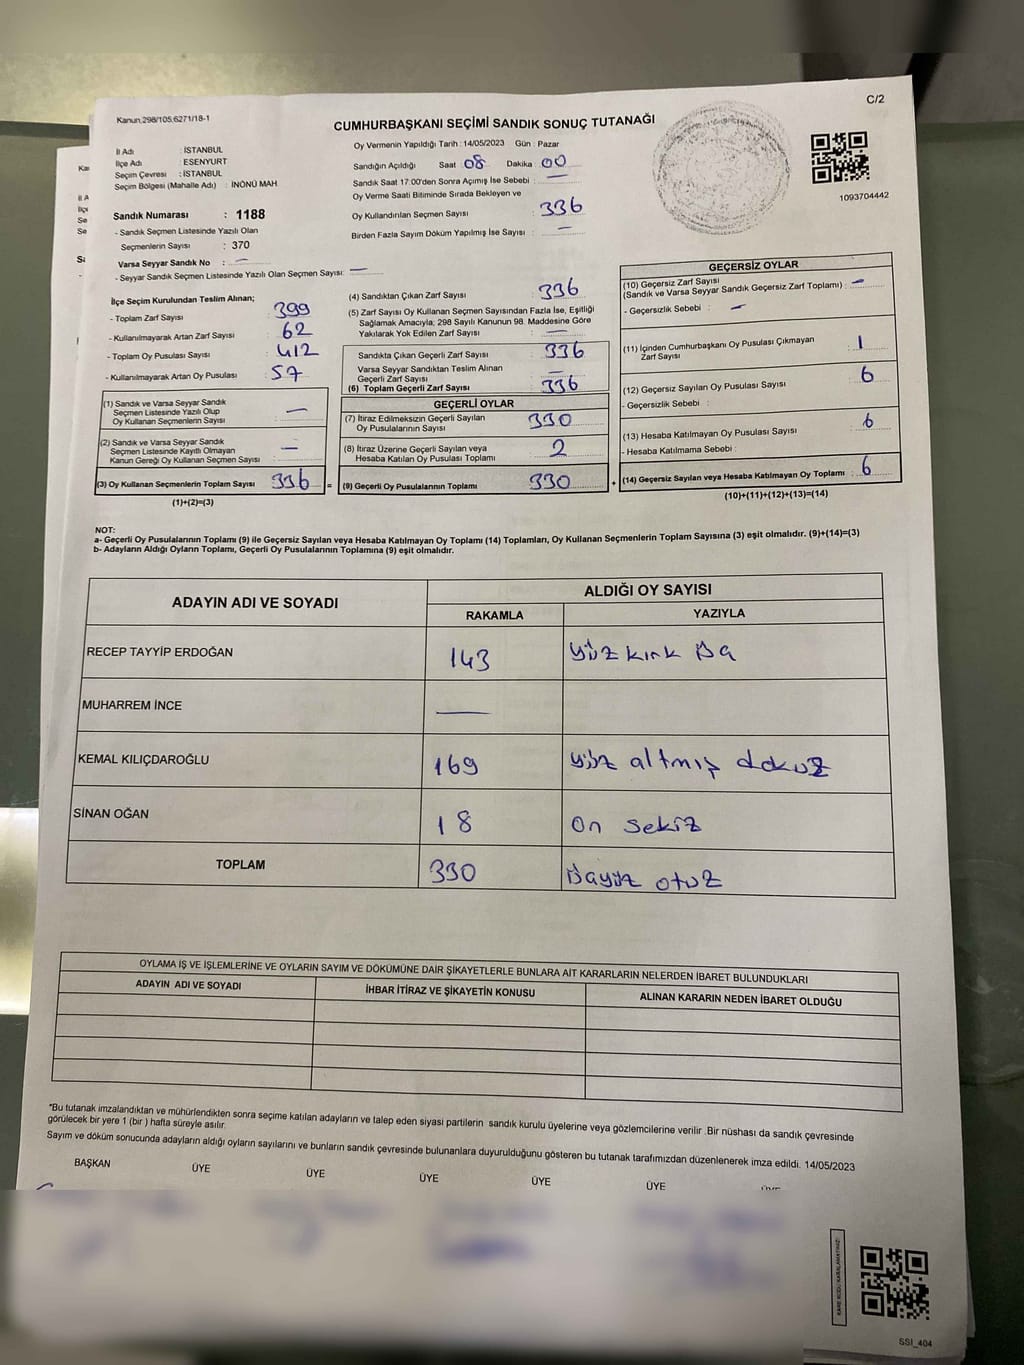 Kanun,298/105,6271/18-1
C/2
CUMHURBAŞKANI SEÇİMİ SANDIK SONUÇ TUTANAĞI
1093704442
İl Adı : İSTANBUL
İlçe Adı : ESENYURT
Seçim Çevresi : İSTANBUL
Seçim Bölgesi (Mahalle Adı) : İNÖNÜ MAH
Sandık Numarası : 1188
- Sandık Seçmen Listesinde Yazılı Olan
Seçmenlerin Sayısı : 370
Varsa Seyyar Sandık No : —
- Seyyar Sandık Seçmen Listesinde Yazılı Olan Seçmen Sayısı: —
Oy Vermenin Yapıldığı Tarih : 14/05/2023 Gün : Pazar
Sandığın Açıldığı Saat 08 Dakika : 00
Sandık Saat 17.00'den Sonra Açımış İse Sebebi : —
Oy Verme Saati Bitiminde Sırada Bekleyen ve
Oy Kullandırılan Seçmen Sayısı : 336
Birden Fazla Sayım Döküm Yapılmış İse Sayısı : —
İlçe Seçim Kurulundan Teslim Alınan;
- Toplam Zarf Sayısı : 399
- Kullanılmayarak Artan Zarf Sayısı : 62
- Toplam Oy Pusulası Sayısı : 412
- Kullanılmayarak Artan Oy Pusulası : 57
(1) Sandık ve Varsa Seyyar Sandık
Seçmen Listesinde Yazılı Olup
Oy Kullanan Seçmenlerin Sayısı : —
(2) Sandık ve Varsa Seyyar Sandık
Seçmen Listesinde Kayıtlı Olmayan
Kanun Gereği Oy Kullanan Seçmen Sayısı : —
(3) Oy Kullanan Seçmenlerin Toplam Sayısı : 336 =
(1)+(2)=(3)
(4) Sandıktan Çıkan Zarf Sayısı : 336
(5) Zarf Sayısı Oy Kullanan Seçmen Sayısından Fazla İse, Eşitliği
Sağlamak Amacıyla; 298 Sayılı Kanunun 98. Maddesine Göre
Yakılarak Yok Edilen Zarf Sayısı : —
Sandıkta Çıkan Geçerli Zarf Sayısı : 336
Varsa Seyyar Sandıktan Teslim Alınan
Geçerli Zarf Sayısı : —
(6) Toplam Geçerli Zarf Sayısı : 336
GEÇERLİ OYLAR
(7) İtiraz Edilmeksizin Geçerli Sayılan
Oy Pusulalarının Sayısı : 330
(8) İtiraz Üzerine Geçerli Sayılan veya
Hesaba Katılan Oy Pusulası Toplamı : 2
(9) Geçerli Oy Pusulalarının Toplamı : 330 +
GEÇERSİZ OYLAR
(10) Geçersiz Zarf Sayısı
(Sandık ve Varsa Seyyar Sandık Geçersiz Zarf Toplamı) : —
- Geçersizlik Sebebi : —
(11) İçinden Cumhurbaşkanı Oy Pusulası Çıkmayan
Zarf Sayısı : 1
(12) Geçersiz Sayılan Oy Pusulası Sayısı : 6
- Geçersizlik Sebebi :
(13) Hesaba Katılmayan Oy Pusulası Sayısı : 6
- Hesaba Katılmama Sebebi :
(14) Geçersiz Sayılan veya Hesaba Katılmayan Oy Toplamı : 6
(10)+(11)+(12)+(13)=(14)
NOT:
a- Geçerli Oy Pusulalarının Toplamı (9) ile Geçersiz Sayılan veya Hesaba Katılmayan Oy Toplamı (14) Toplamları, Oy Kullanan Seçmenlerin Toplam Sayısına (3) eşit olmalıdır. (9)+(14)=(3)
b- Adayların Aldığı Oyların Toplamı, Geçerli Oy Pusulalarının Toplamına (9) eşit olmalıdır.
ADAYIN ADI VE SOYADI
ALDIĞI OY SAYISI
RAKAMLA YAZIYLA
RECEP TAYYİP ERDOĞAN 143 Yüz kırk üç
MUHARREM İNCE —
KEMAL KILIÇDAROĞLU 169 Yüz altmış dokuz
SİNAN OĞAN 18 On sekiz
TOPLAM 330 üçyüz otuz
OYLAMA İŞ VE İŞLEMLERİNE VE OYLARIN SAYIM VE DÖKÜMÜNE DAİR ŞİKAYETLERLE BUNLARA AİT KARARLARIN NELERDEN İBARET BULUNDUKLARI
ADAYIN ADI VE SOYADI İHBAR İTİRAZ VE ŞİKAYETİN KONUSU ALINAN KARARIN NEDEN İBARET OLDUĞU
*Bu tutanak imzalandıktan ve mühürlendikten sonra seçime katılan adayların ve talep eden siyasi partilerin sandık kurulu üyelerine veya gözlemcilerine verilir .Bir nüshası da sandık çevresinde
görülecek bir yere 1 (bir ) hafta süreyle asılır.
Sayım ve döküm sonucunda adayların aldığı oyların sayılarını ve bunların sandık çevresinde bulunanlara duyurulduğunu gösteren bu tutanak tarafımızdan düzenlenerek imza edildi. 14/05/2023
BAŞKAN ÜYE ÜYE ÜYE ÜYE ÜYE
SSI_404